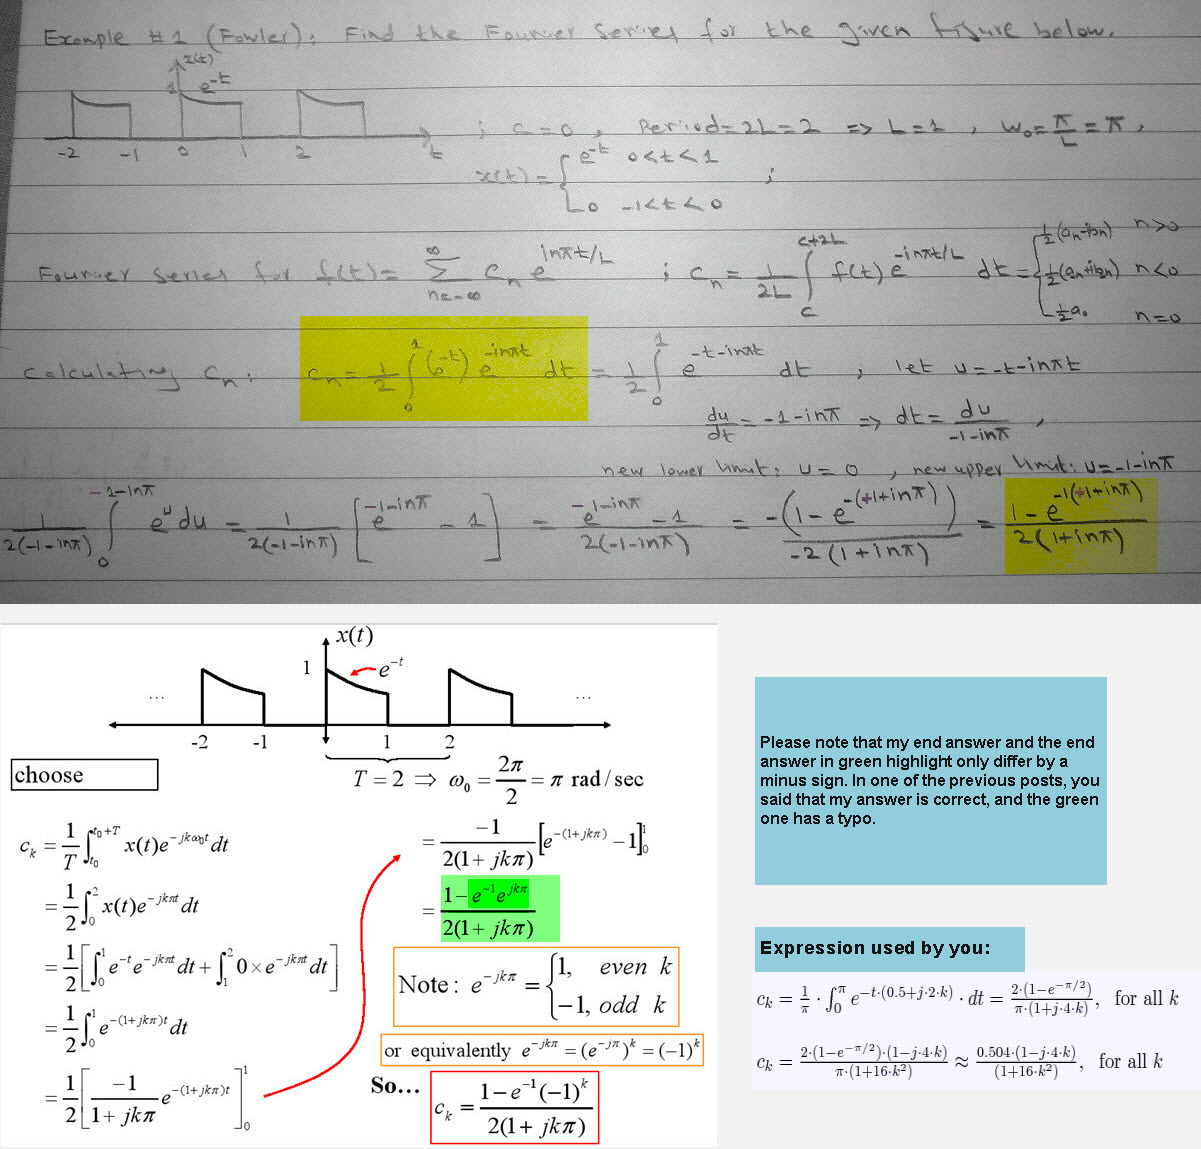 Example #1 (Fowler): Find the Fourier Series for the given figure below.
x(t)
1 e^-t
-2 -1 0 1 2 t
; c=0, Period=2L=2 => L=1, W₀=π/L=π,
x(t)={ e^-t 0<t<1 ;
0 -1<t<0
Fourier Series for f(t)= Σ_{n=-∞}^{∞} c_n e^{inπt/L} ; c_n = 1/2L ∫_c^{c+2L} f(t) e^{-inπt/L} dt = { ½(a_n-ib_n) n>0
½(a_n+ib_n) n<0
½a₀ n=0
Calculating C_n: c_n = 1/2 ∫_0^1 (e^-t) e^{-inπt} dt = 1/2 ∫_0^1 e^{-t-inπt} dt ; let u=-t-inπt
du/dt = -1-inπ => dt = du/(-1-inπ) ,
new lower limit: u=0 , new upper limit: u=-1-inπ
1/(2(-1-inπ)) ∫_0^{-1-inπ} e^u du = 1/(2(-1-inπ)) [e^{-1-inπ} - 1] = (e^{-1-inπ} - 1)/(2(-1-inπ)) = -(1-e^{-(+1+inπ)})/(-2(1+inπ)) = (1-e^{-1(+1+inπ)})/(2(1+inπ))
x(t)
1 e^-t
... ...
-2 -1 1 2
choose
T = 2 ⇒ ω₀ = 2π/2 = π rad/sec
c_k = 1/T ∫_{t₀}^{t₀+T} x(t)e^{-jkω₀t} dt
= 1/2 ∫_0^2 x(t)e^{-jkπt} dt
= 1/2 [∫_0^1 e^{-t}e^{-jkπt} dt + ∫_1^2 0×e^{-jkπt} dt]
= 1/2 ∫_0^1 e^{-(1+jkπ)t} dt
= 1/2 [-1/(1+jkπ) e^{-(1+jkπ)t}]_0^1
= -1/(2(1+jkπ)) [e^{-(1+jkπ)} - 1]_0^1
= (1-e^{-1}e^{jkπ})/(2(1+jkπ))
Note: e^{-jkπ} = { 1, even k
-1, odd k
or equivalently e^{-jkπ} = (e^{-jπ})^k = (-1)^k
So... c_k = (1-e^{-1}(-1)^k)/(2(1+jkπ))
Please note that my end answer and the end
answer in green highlight only differ by a
minus sign. In one of the previous posts, you
said that my answer is correct, and the green
one has a typo.
Expression used by you:
c_k = 1/π · ∫_0^π e^{-t·(0.5+j·2·k)} · dt = 2·(1-e^{-π/2})/(π·(1+j·4·k)), for all k
c_k = 2·(1-e^{-π/2})·(1-j·4·k)/(π·(1+16·k²)) ≈ 0.504·(1-j·4·k)/(1+16·k²), for all k